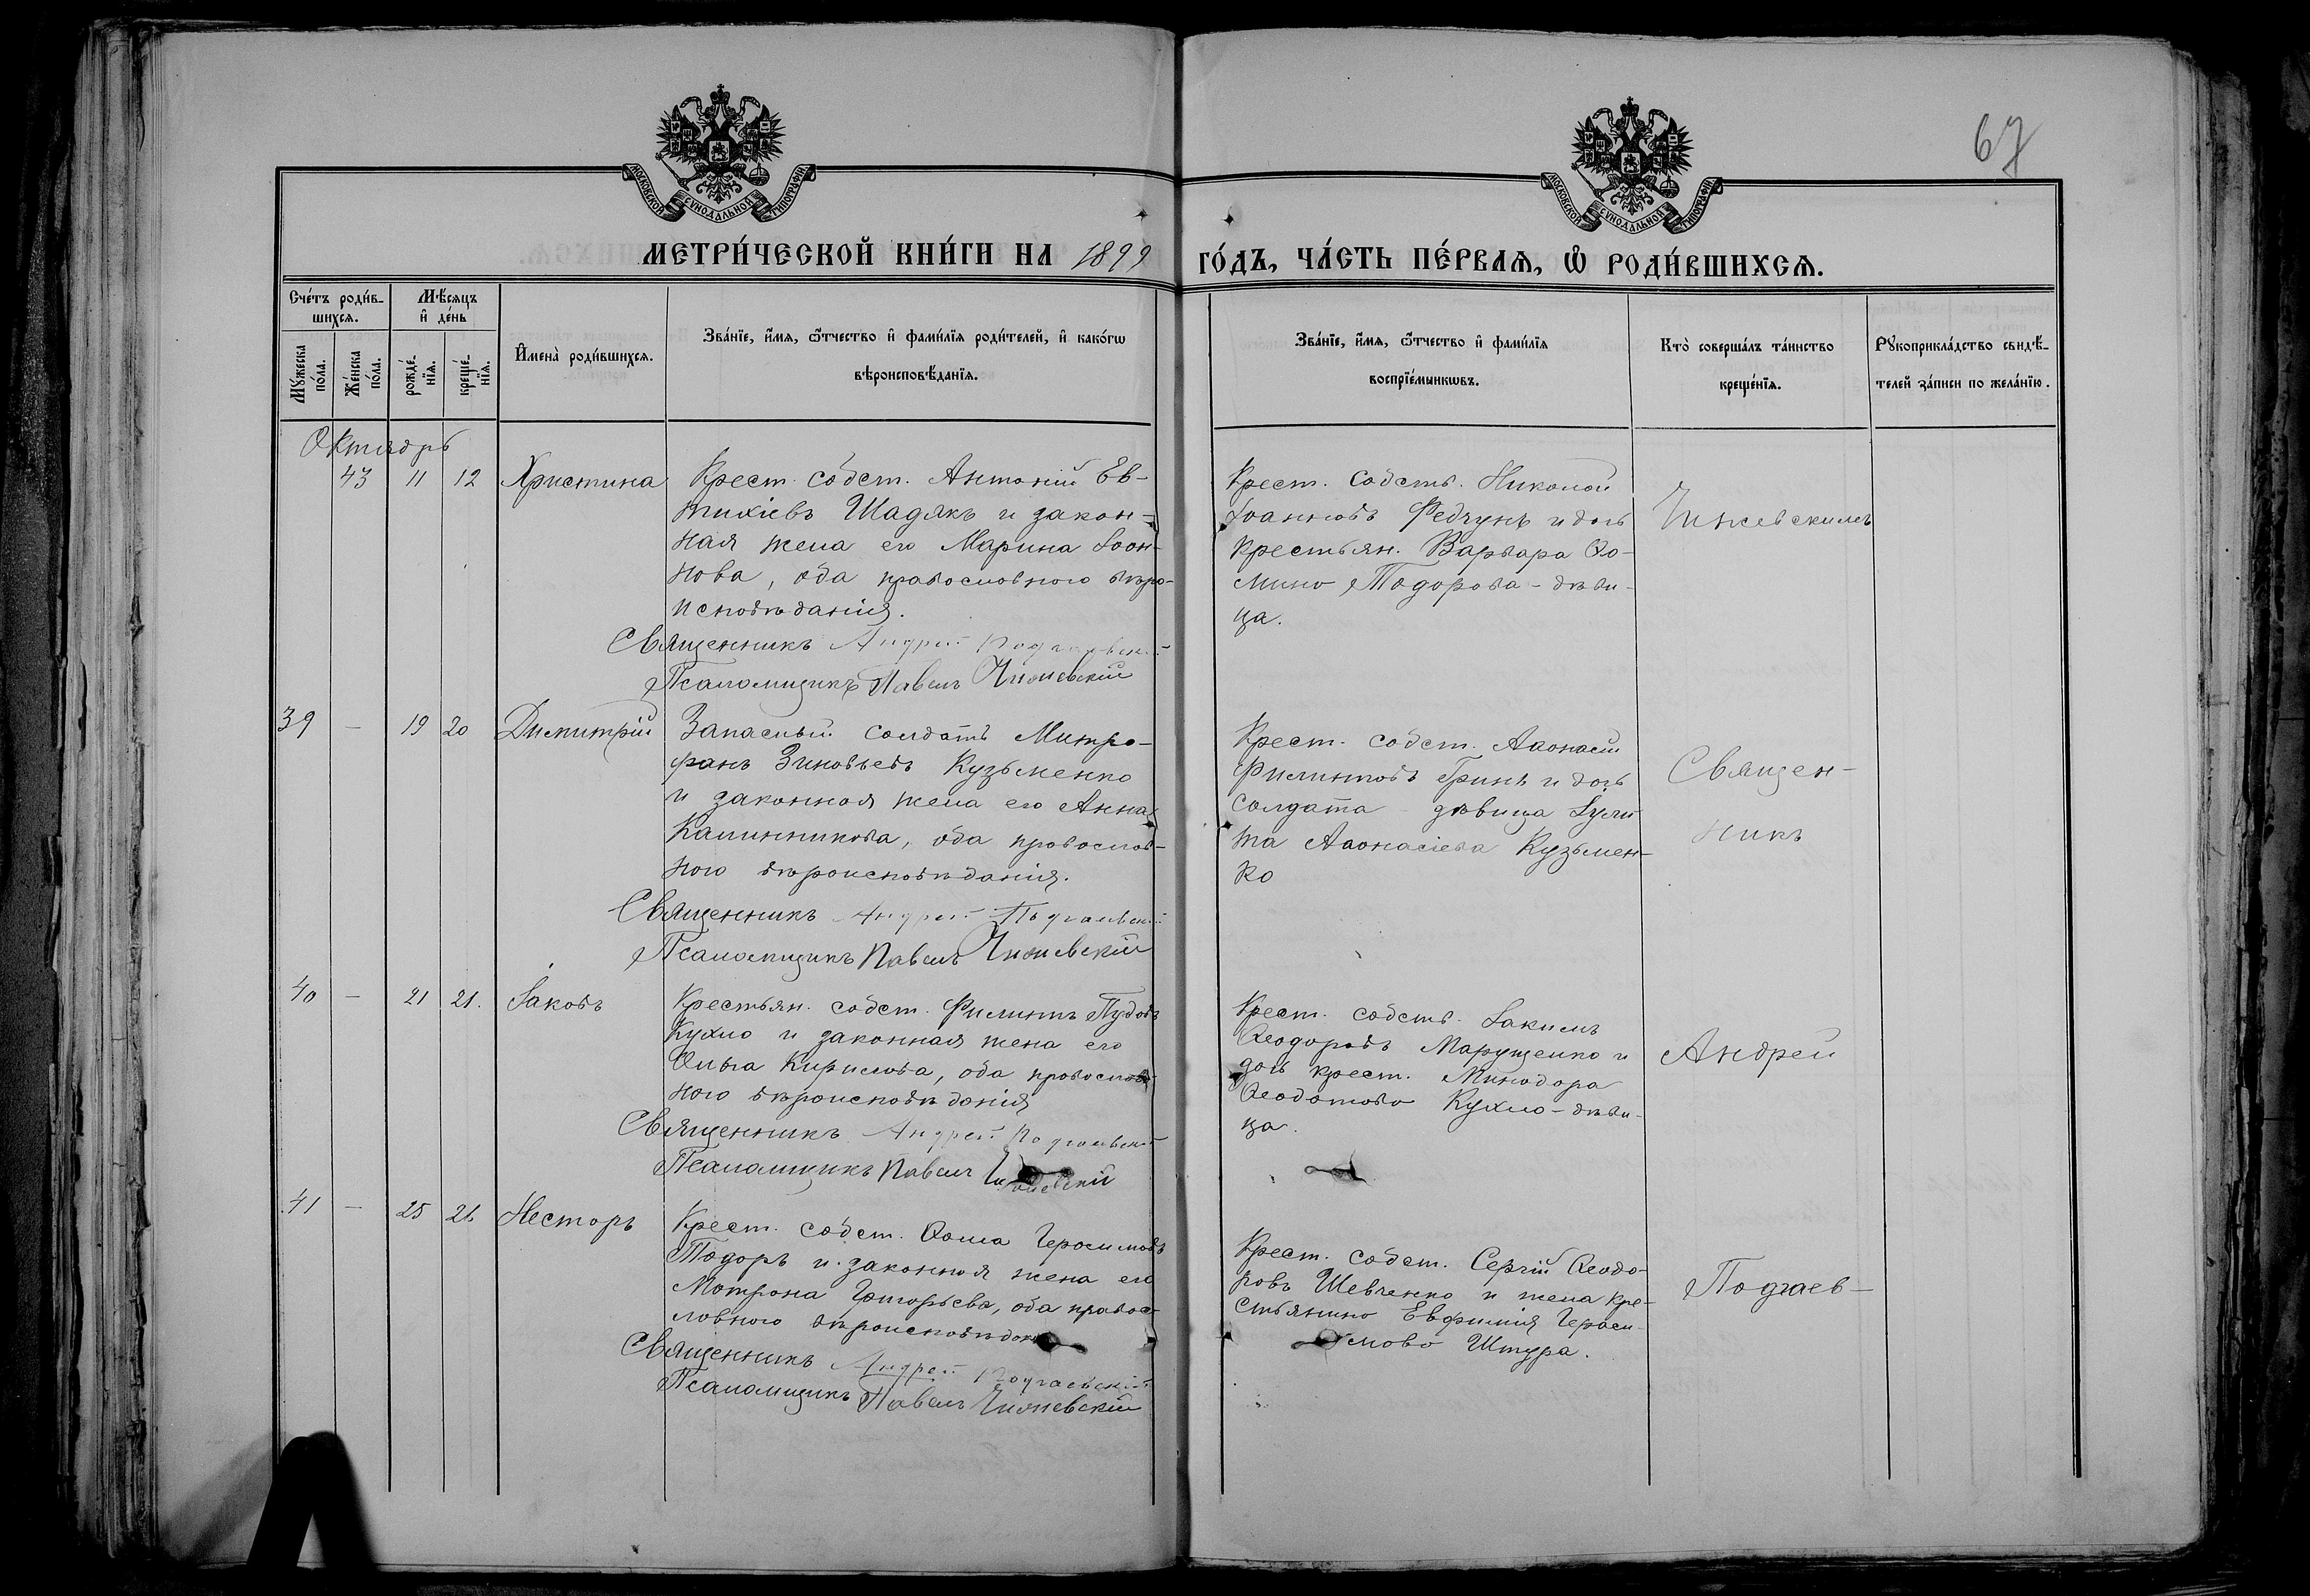 67
МОСКОВСКОЙ СѴНОДАЛЬНОЙ ТИПОГРАФІИ
МОСКОВСКОЙ СѴНОДАЛЬНОЙ ТИПОГРАФІИ
МЕТРИ́ЧЕСКОЙ КНИ́ГИ НА 1899 ГО́ДЪ, ЧА́СТЬ ПЕ́РВАѦ, Ѽ РОДИ́ВШИХСѦ.
Сче́тъ роди́в-
шихсѧ.
Мꙋ́жеска по́ла.
Же́нска по́ла.
Мѣ́сѧцъ
и҆ де́нь
рожде́-
нїѧ.
креще́-
нїѧ.
И҆мена̀ роди́вшихсѧ.
Зва́нїе, и҆́мѧ, ѻ҆́тчество и҆ фами́лїѧ роди́телей, и҆ како́гѡ
вѣроисповѣ́данїѧ.
Зва́нїе, и҆́мѧ, ѻ҆́тчество и҆ фами́лїѧ
воспрїе́мникѡвъ.
Кто̀ соверша́лъ та́инство
креще́нїѧ.
Рꙋкоприкла́дство свидѣ́-
телей за́писи по жела́нїю.
Октябрь
43 11 12 Христина
Крест. собст. Антоній Ев-
тихіевъ Шадякъ и закон-
ная жена его Марина Іоан-
нова, оба православнаго вѣро-
исповѣданія.
Священникъ Андрей Подгаевскій
Псаломщикъ Павелъ Чижевскій
Крест. собств. Николай
Іоанновъ Федчунъ и дочь
крестьян. Варвара Ѳо-
мина Тодорова - дѣви-
ца.
39 — 19 20 Димитрій
Запасный солдатъ Митро-
фанъ Зиновьевъ Кузьменко
и законная жена его Анна
Калинникова, оба православ-
наго вѣроисповѣданія.
Священникъ Андрей Подгаевскій
Псаломщикъ Павелъ Чижевскій
Крест. собст. Аѳанасій
Филиповъ Гринь и дочь
солдата дѣвица Іули
та Аѳанасіева Кузьмен-
ко
Священ-
никъ
40 — 21 21. Іаковъ
Крестьян. собст. Филиппъ Пудовъ
Кухло и законная жена его
Ольга Кирилова, оба православ-
наго вѣроисповѣданія
Священникъ Андрей Подгаевскій
Псаломщикъ Павелъ Чижевскій
Крест. собств. Іакимъ
Ѳеодоровъ Марущенко и
дочь крест. Минодора
Ѳеодотова Кухло - дѣви-
ца.
Андрей
41 — 25 26 Несторъ
Крест. собст. Ѳома Герасимовъ
Тодоръ и законная жена его
Мотрона Григорьева, оба правос-
лавнаго
Священникъ Андрей Подгаевскій
Псаломщикъ Павелъ Чижевскій
Крест. собст. Сергій Ѳеодо-
ровъ Шевченко и жена кре-
стьянина Евфимія Гераси-
мова Штура.
Подгаев-